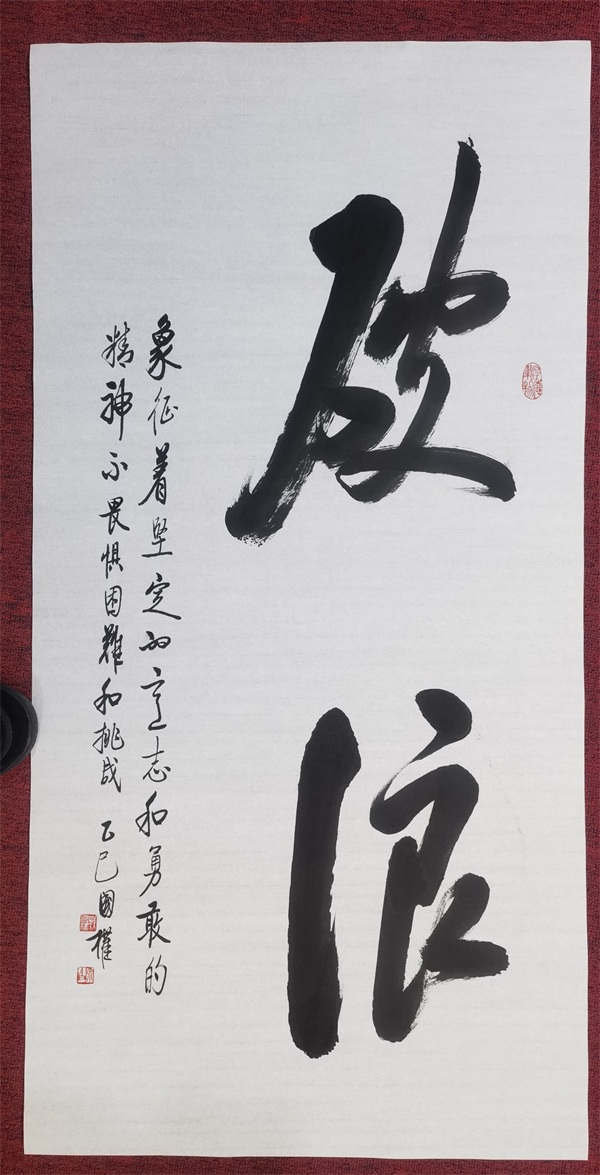 破浪
象征着坚定的意志和勇敢的
精神不畏惧困难和挑战 乙巳国权